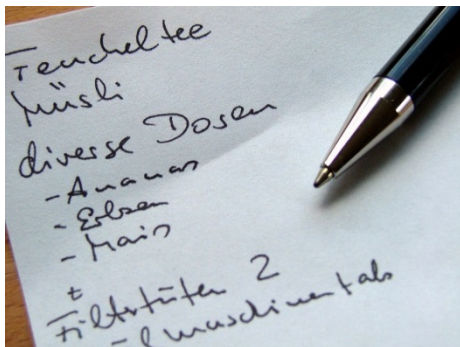 Fencheltee
Müsli
diverse Dosen
- Ananas
- Erbsen
- Mais
Filtertüten 2